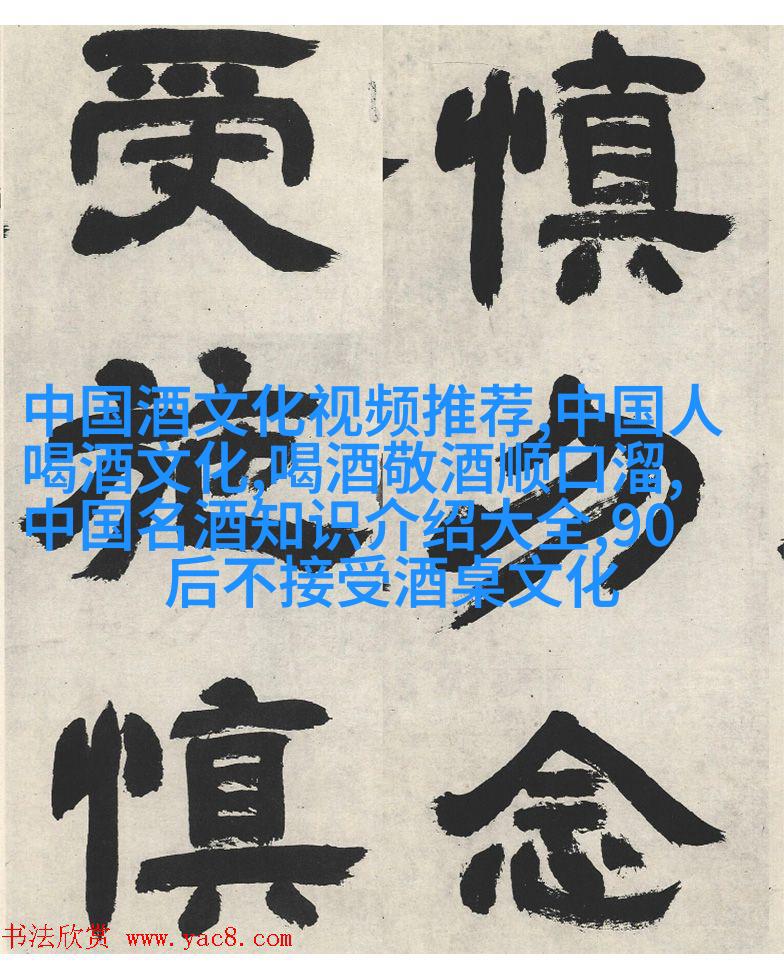 慎勿念
受施慎
中国酒文化视频推荐,中国人
喝酒文化,喝酒敬酒顺口溜,
中国名酒知识介绍大全,90
后不接受酒桌文化
书法欣赏 www.yac8.com